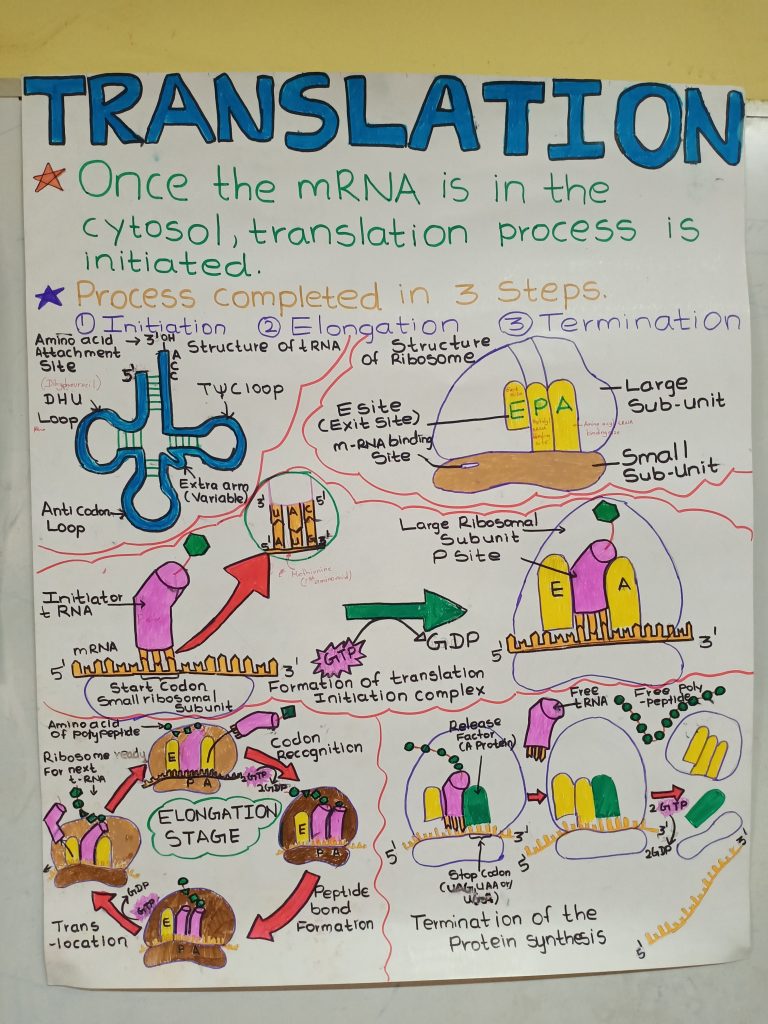 TRANSLATION
Once the mRNA is in the
cytosol, translation process is
initiated.
Process completed in 3 Steps.
① Initiation ② Elongation ③ Termination
Amino acid → 3' OH
Attachment
Site
A
C
C
5'
Structure of tRNA
DHU
Loop
TΨC loop
Extra arm
(Variable)
Anti codon
Loop
Structure
of Ribosome
E site
(Exit Site)
m-RNA binding
Site
E P A
Large
Sub-unit
Small
Sub-unit
3' 5'
U A C
A U G
5' 3'
Methionine
Initiator
tRNA
mRNA
5' 3'
Start Codon
Small ribosomal
Subunit
GTP
GDP
Formation of translation
Initiation complex
Large Ribosomal
Subunit
P Site
E A
5' 3'
Amino acid
of polypeptide
Ribosome ready
For next
t-RNA
E
P A
Codon
Recognition
2GTP
2GDP
ELONGATION
STAGE
E
P A
Peptide
bond
Formation
E
P A
GTP
GDP
Trans
-location
Release
Factor
(A Protein)
Free
tRNA
Free Poly
-peptide
5' 3'
Stop Codon
(UAG, UAA or
UGA)
5' 3'
2GTP
2GDP
3'
5'
Termination of the
Protein synthesis